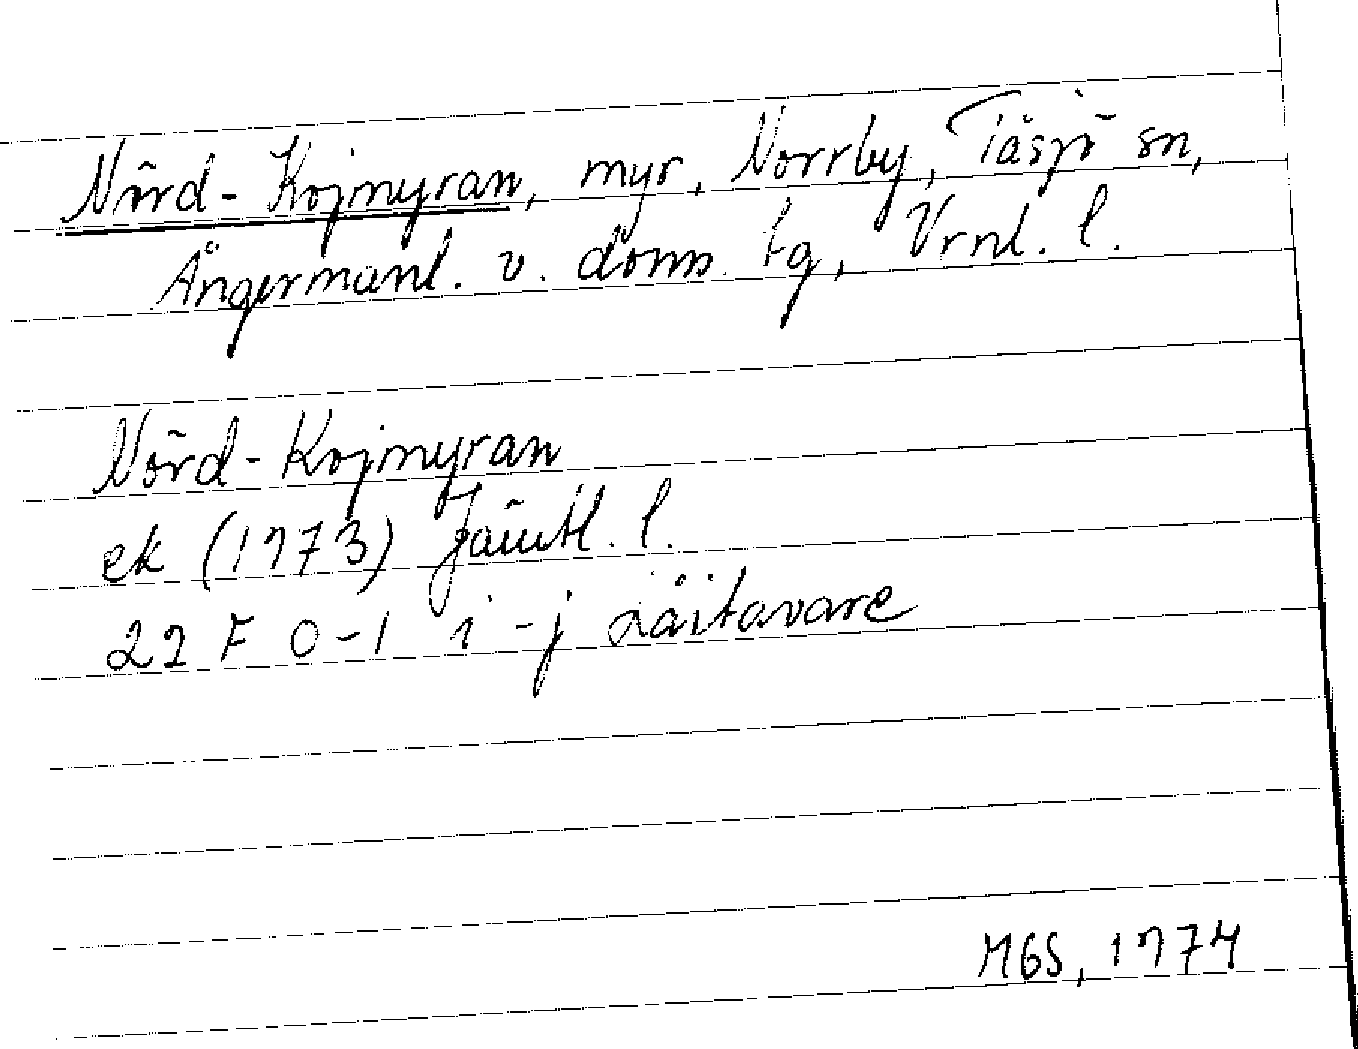 Nörd-Kojmyran, myr, Norrby, Tåsjö sn,
Ångermanl. v. doms. tg, Vrnl. l.
Nörd-Kojmyran
ek (1973) Jämtl. l.
22 F 0-1 i-j Låitavare
MGS, 1974